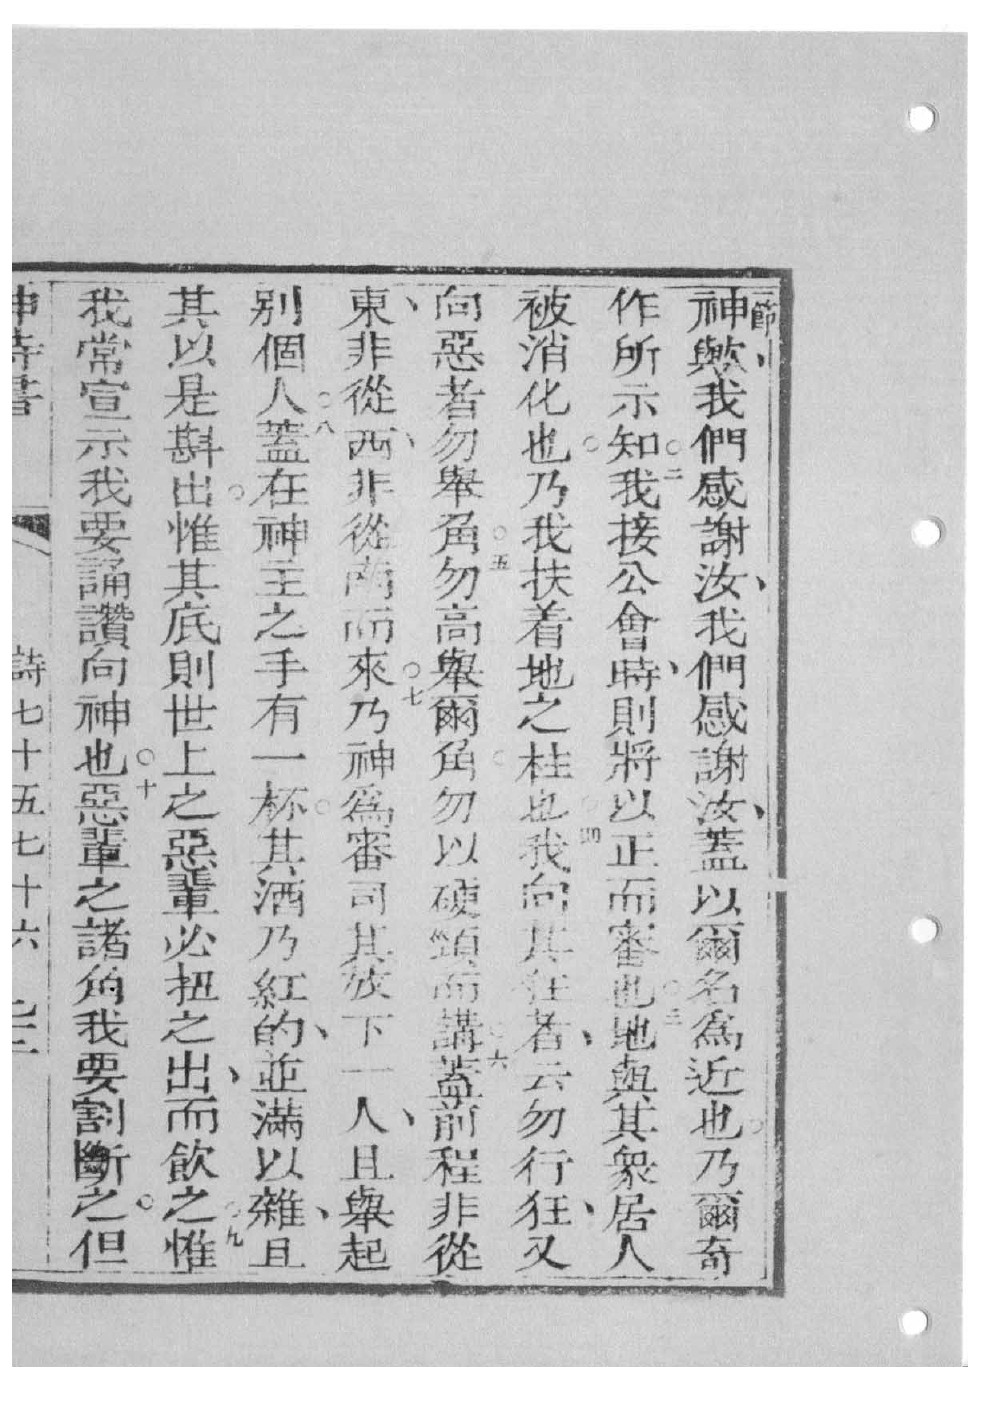 節
神歟我們感謝汝我們感謝汝蓋以爾名為近也乃爾奇
作所示知○二我接公會時則將以正而審也○三地與其衆居人
被消化也○乃我扶着地之柱也○四我向其狂者云勿行狂又
向惡者勿舉角○五勿高舉爾角○勿以硬頸而講○六蓋前程非從
東非從西非從南而來○七乃神為審司其放下一人且舉起
別個人○八蓋在神主之手有一杯○其酒乃紅的並滿以雜且
其以是斟出○惟其底則世上之惡輩必扭之出而飲之○九惟
我常宣示我要誦讚向神也○十惡輩之諸角我要割斷之○但
神詩書 詩七十五七十六